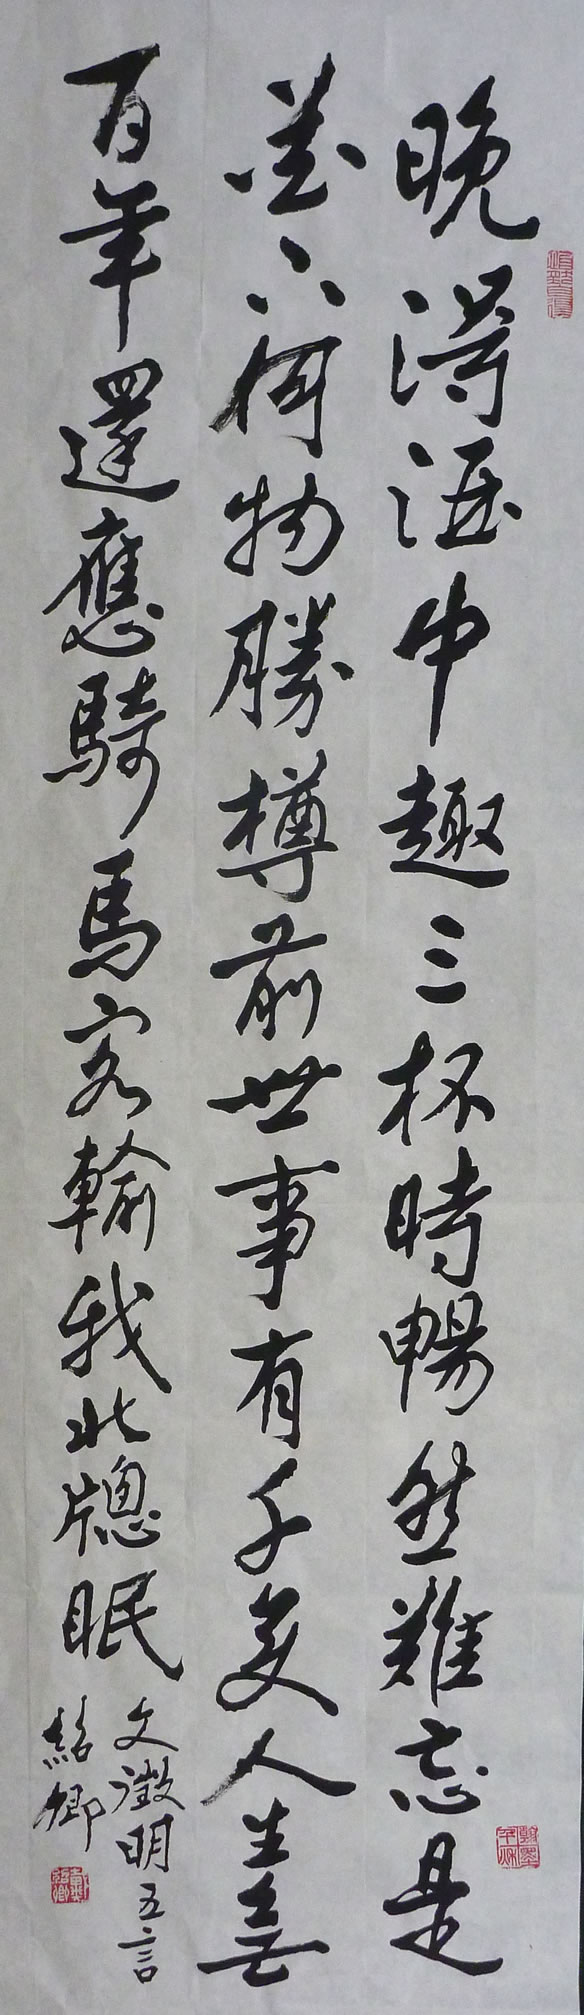 晚得酒中趣三杯時暢然難忘是
花下何物勝樽前世事有千变人生無
百年還應騎馬客輸我北牕眠
文徵明五言
紹卿